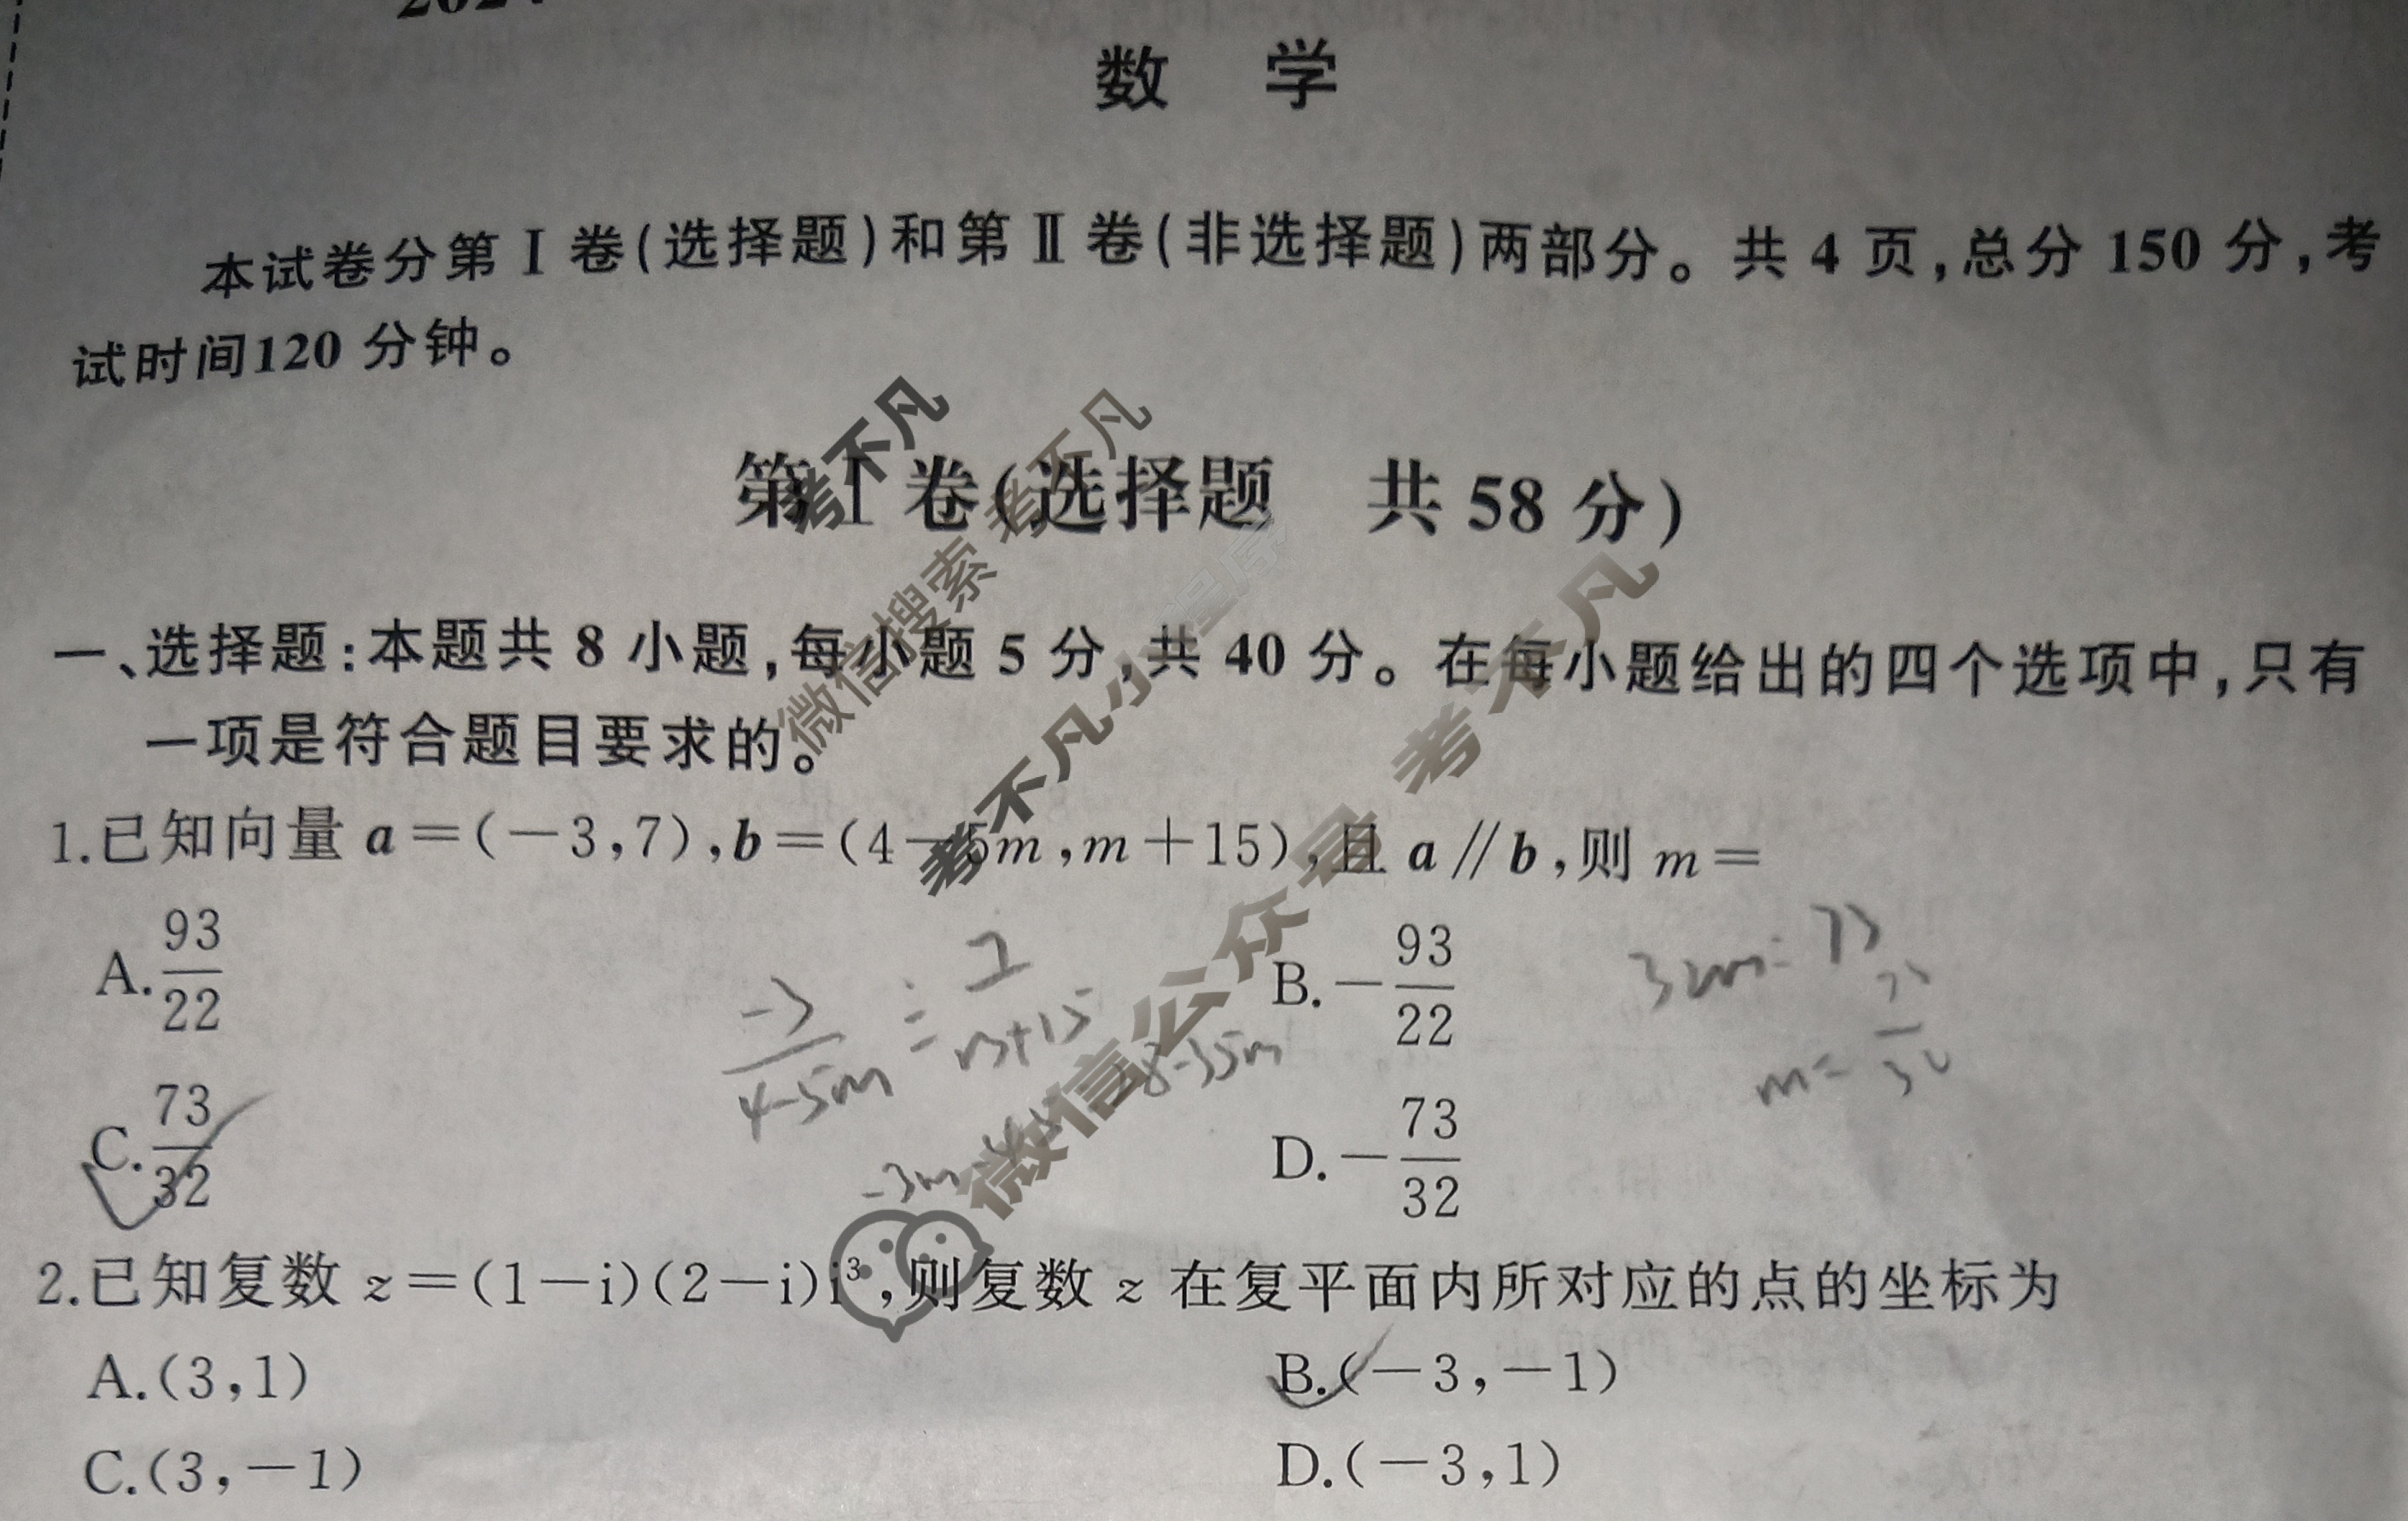 数 学
本试卷分第Ⅰ卷(选择题)和第Ⅱ卷(非选择题)两部分。共 4 页,总分 150 分,考
试时间120 分钟。
第Ⅰ卷(选择题 共 58 分)
一、选择题:本题共 8 小题,每小题 5 分,共 40 分。在每小题给出的四个选项中,只有
一项是符合题目要求的。
1.已知向量 a=(-3,7),b=(4-5m,m+15),且 a∥b,则 m=
A. 93/22
B. -93/22
C. 73/32
D. -73/32
-3/(4-5m) = 7/(m+15)
28-35m
32m=73
2.已知复数 z=(1-i)(2-i)i³,则复数 z 在复平面内所对应的点的坐标为
A.(3,1)
B.(-3,-1)
C.(3,-1)
D.(-3,1)
考不凡
微信搜索 考不凡
考不凡小程序
微信公众号 考不凡